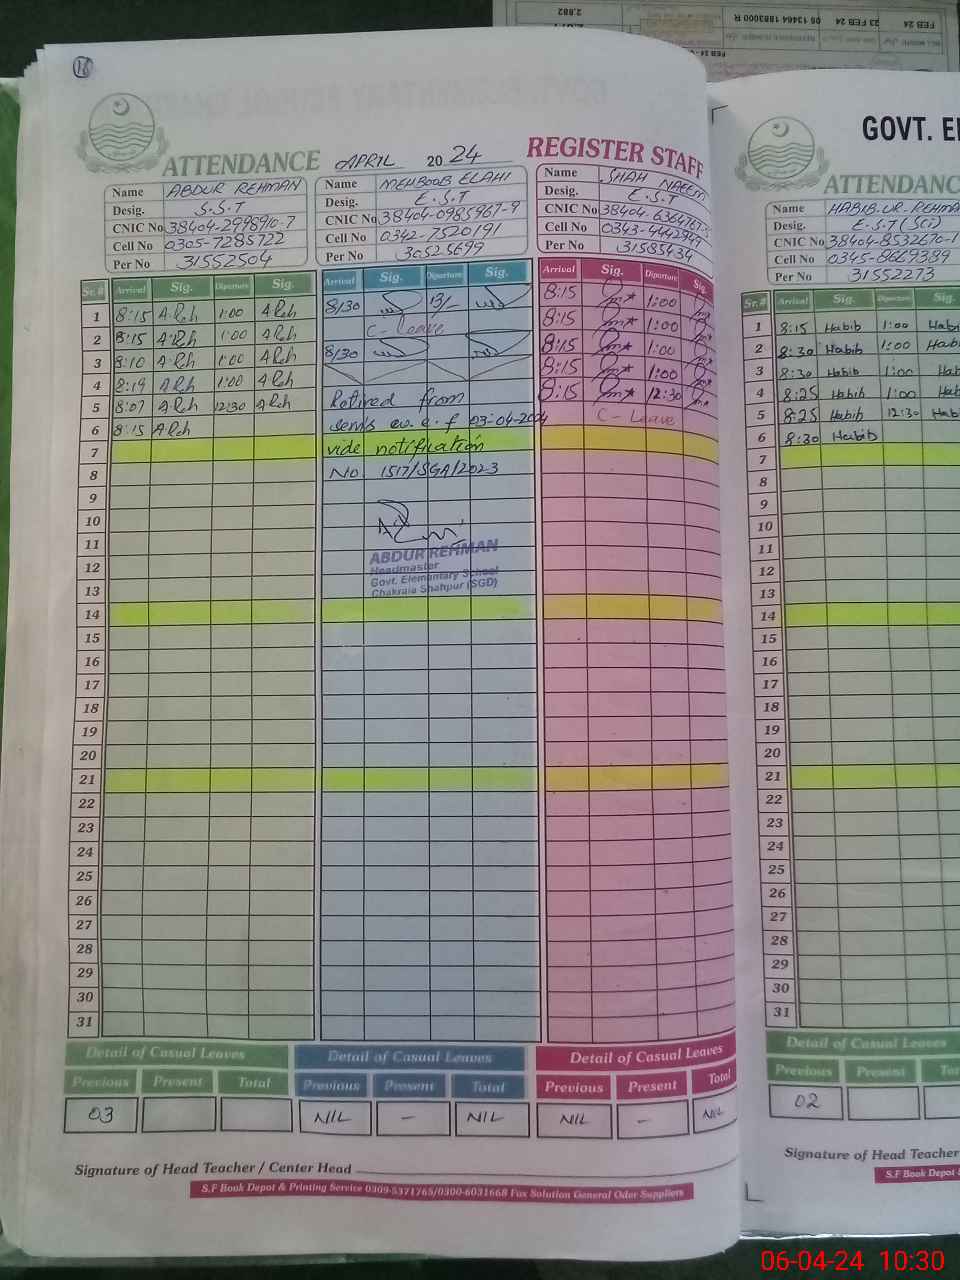 2,882
FEB 24 23 FEB 24 05 13464 1883000 R
16
ATTENDANCE APRIL 20 24 REGISTER STAFF
Name ABDUR REHMAN
Desig. S.S.T
CNIC No 38404-2998910-7
Cell No 0305-7285722
Per No 31552504
Name MEHBOOB ELAHI
Desig. E.S.T
CNIC No 38404-0985967-9
Cell No 0342-7520191
Per No 30525699
Name SHAH NAEEM
Desig. E.S.T
CNIC No 38404-6364767-
Cell No 0343-4442949
Per No 31585434
Sr.# Arrival Sig. Diparture Sig.
1 8:15 A Reh 1:00 A Reh
2 8:15 A Reh 1:00 A Reh
3 8:10 A Reh 1:00 A Reh
4 8:19 A Reh 1:00 A Reh
5 8:07 A Reh 12:30 A Reh
6 8:15 A Reh
7
8
9
10
11
12
13
14
15
16
17
18
19
20
21
22
23
24
25
26
27
28
29
30
31
Arrival Sig. Diparture Sig.
8/30 13/-
C- Leave
8/30
Retired from
w.e.f 03-04-2024
vide notification
No 1517/SGA/2023
ABDUR REHMAN
Headmaster
Govt. Elementary School
Chakrala Shahpur (SGD)
Arrival Sig. Diparture Sig.
8:15 1:00
8:15 1:00
8:15 1:00
8:15 1:00
8:15 12:30
C- Leave
Detail of Casual Leaves
Previous Present Total
03
Detail of Casual Leaves
Previous Present Total
NIL - NIL
Detail of Casual Leaves
Previous Present Total
NIL - NIL
Signature of Head Teacher / Center Head
S.F Book Depot & Printing Service 0309-5371765/0300-6031668 Fax Solution General Oder Suppliers
GOVT. EL
ATTENDANC
Name HABIB.UR.REHMA
Desig. E.S.T (SCI)
CNIC No 38404-8532670-1
Cell No 0345-8669389
Per No 31552273
Sr.# Arrival Sig. Diparture Sig.
1 8:15 Habib 1:00 Habi
2 8:30 Habib 1:00 Hab
3 8:30 Habib 1:00 Hab
4 8:25 Habib 1:00 Hab
5 8:25 Habib 12:30 Hab
6 8:30 Habib
7
8
9
10
11
12
13
14
15
16
17
18
19
20
21
22
23
24
25
26
27
28
29
30
31
Detail of Casual Leaves
Previous Present Tot
02
Signature of Head Teacher
S.F Book Depot &
06-04-24 10:30